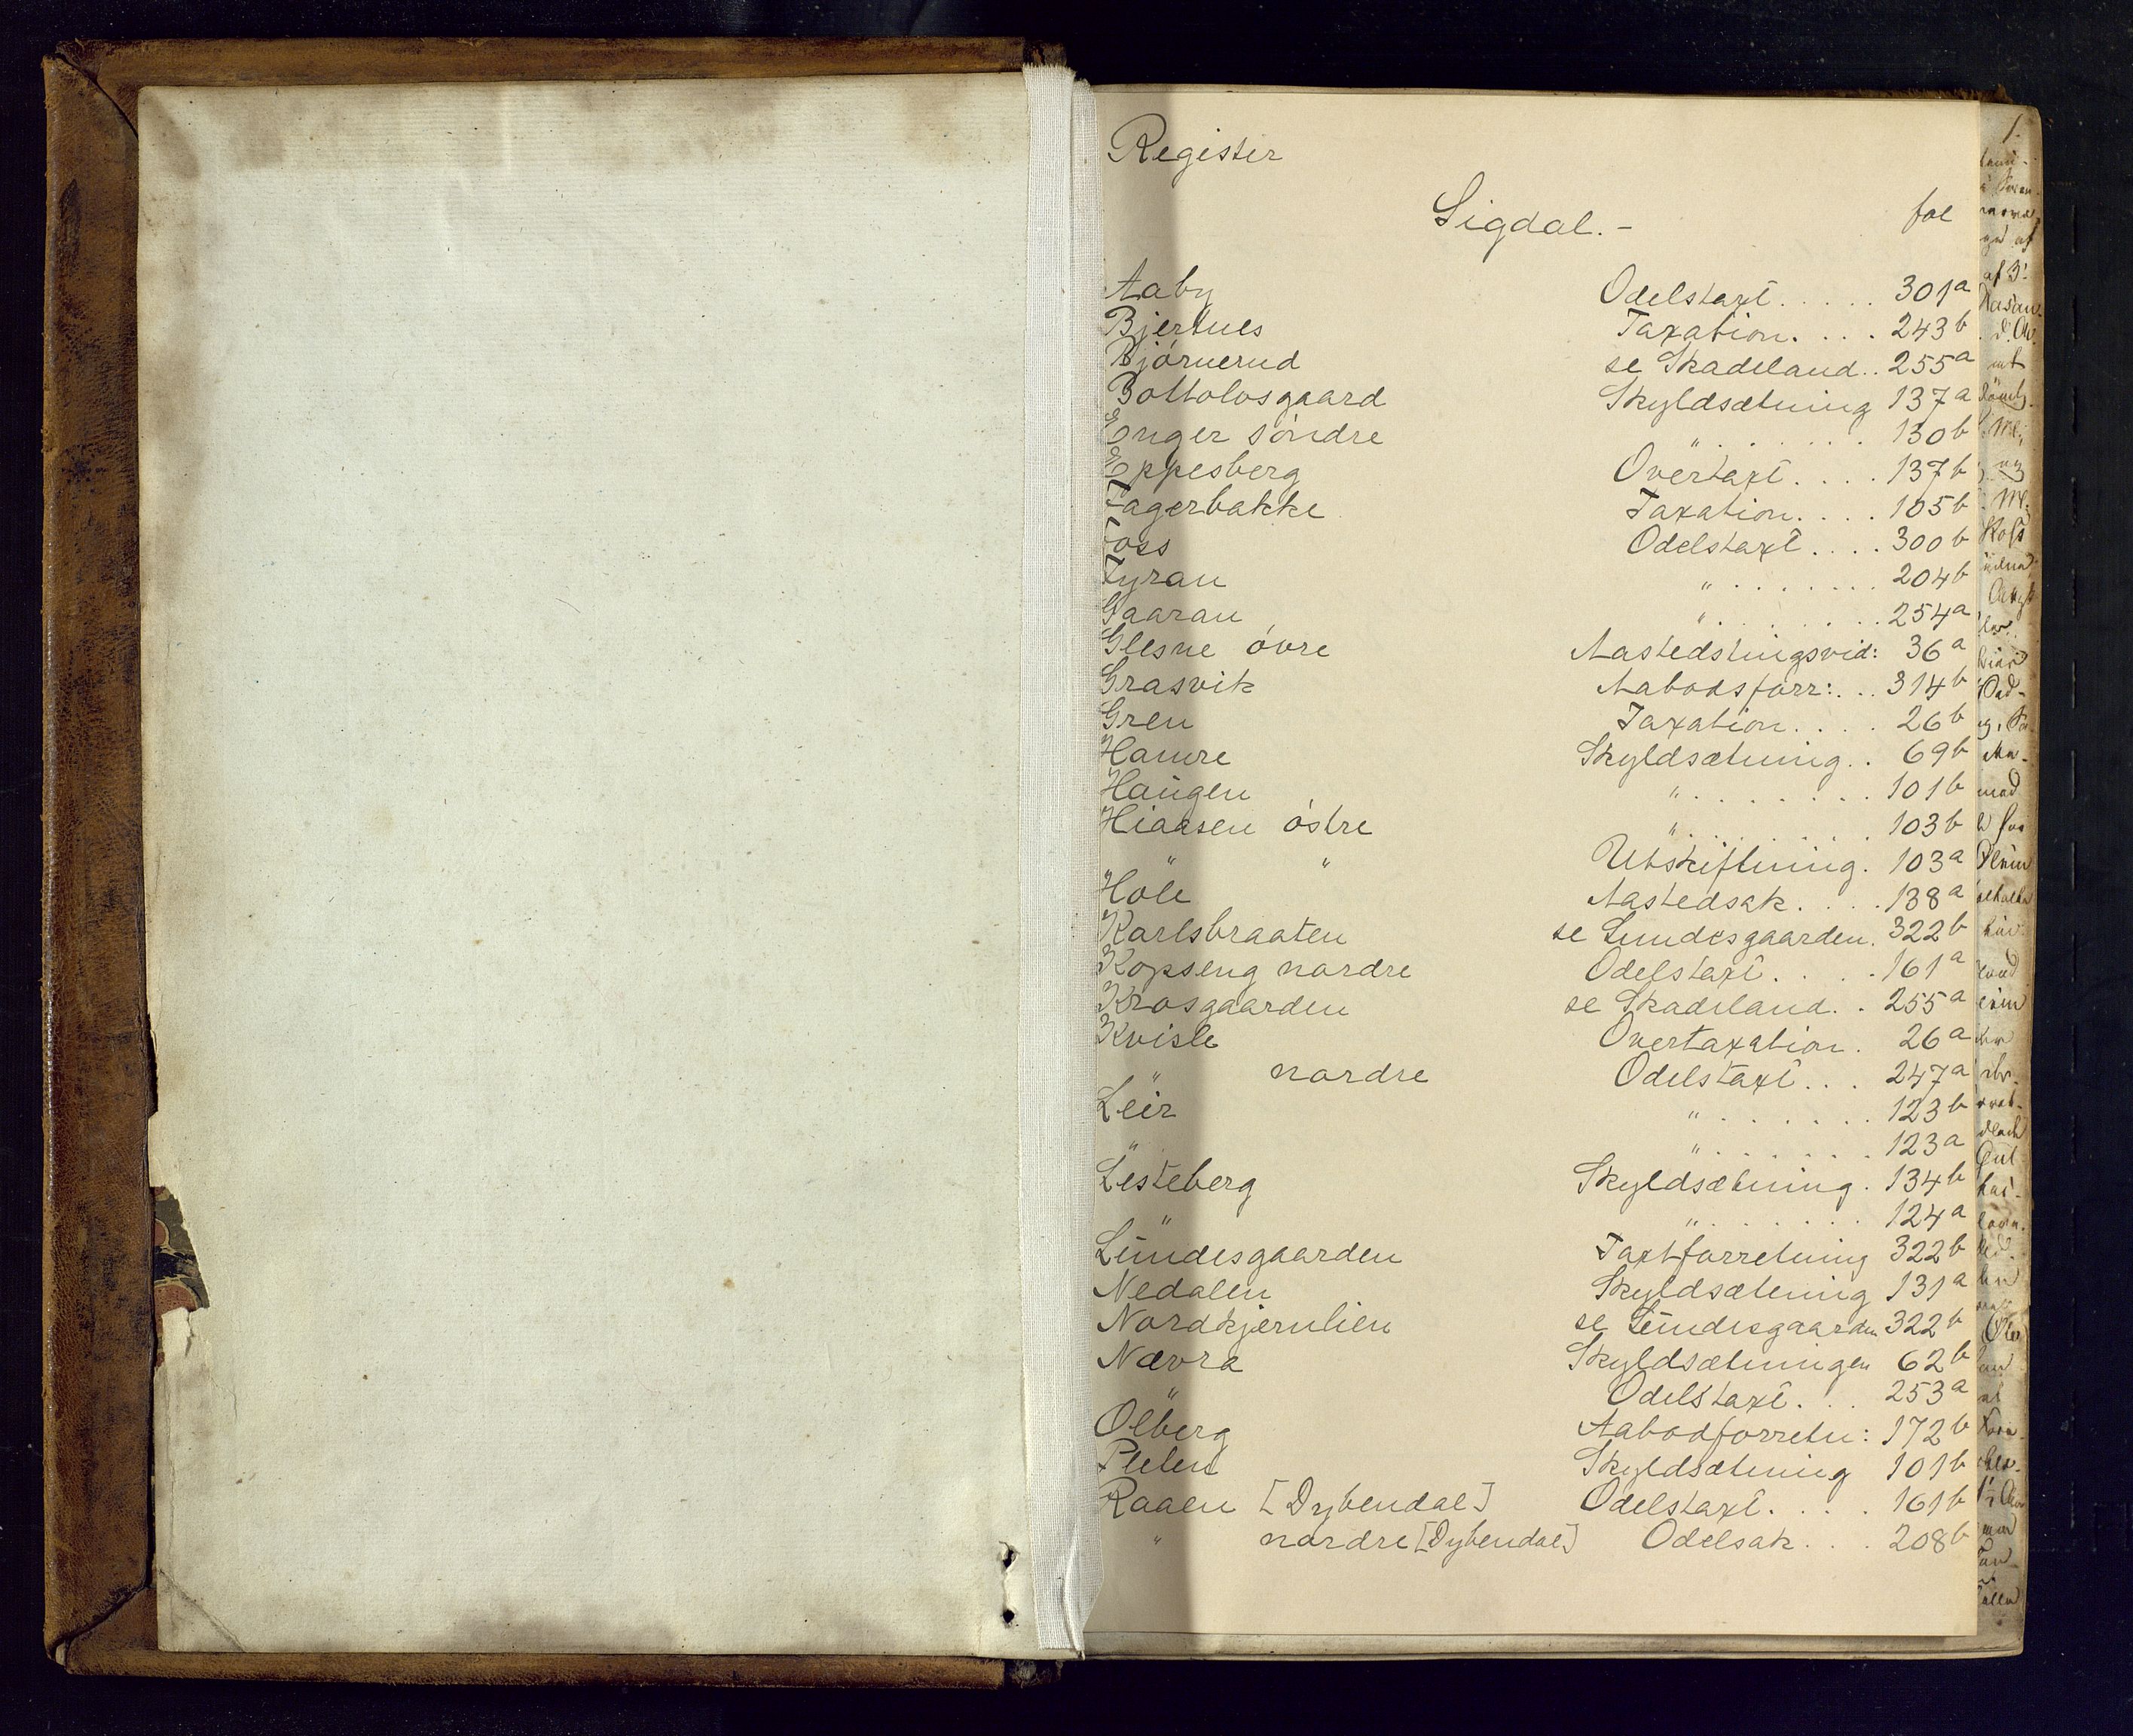 Register
Sigdal. - fol
Aaby Odelstaxt..... 301a
Bjertnes Taxation.... 243b
Bjørnerud se Skadeland.. 255a
Bottolvsgaard Skyldsætning 137a
Enger søndre " ....... 130b
Eppesberg Overtaxt.... 137b
Fagerbakke Taxation.... 105b
Foss Odelstaxt.... 300b
Fyran " ....... 204b
Gaaran " ........ 254a
Glesne øvre Aastedstingsvid: 36a
Grasvik Aabodsforr:... 314b
Gren Taxation.... 26b
Hamre Skyldsætning.. 69b
Haugen " ........ 101b
Hiaasen østre " ........ 103b
" " Utskiftning. 103a
Hole Aastedsak.... 138a
Karlsbraaten se Lundesgaarden. 322b
Kopseng nordre Odelstaxt.... 161a
Krosgaarden se Skadeland.. 255a
Kvisle Overtaxation. 26a
" nordre Odelstaxt... 247a
Leir " ....... 123b
" " ....... 123a
Lesteberg Skyldsætning. 134b
" " ....... 124a
Lundesgaarden Taxtforretning 322b
Nedalen Skyldsætning 131a
Nordkjernlien se Lundesgaarden 322b
Nævra Skyldsætningen 62b
" Odelstaxt... 253a
Olberg Aabodforretn: 172b
Pleten Skyldsætning 101b
Raaen [Dybendal] Odelstaxt.... 161b
" nordre [Dybendal] Odelsak... 208b
1.